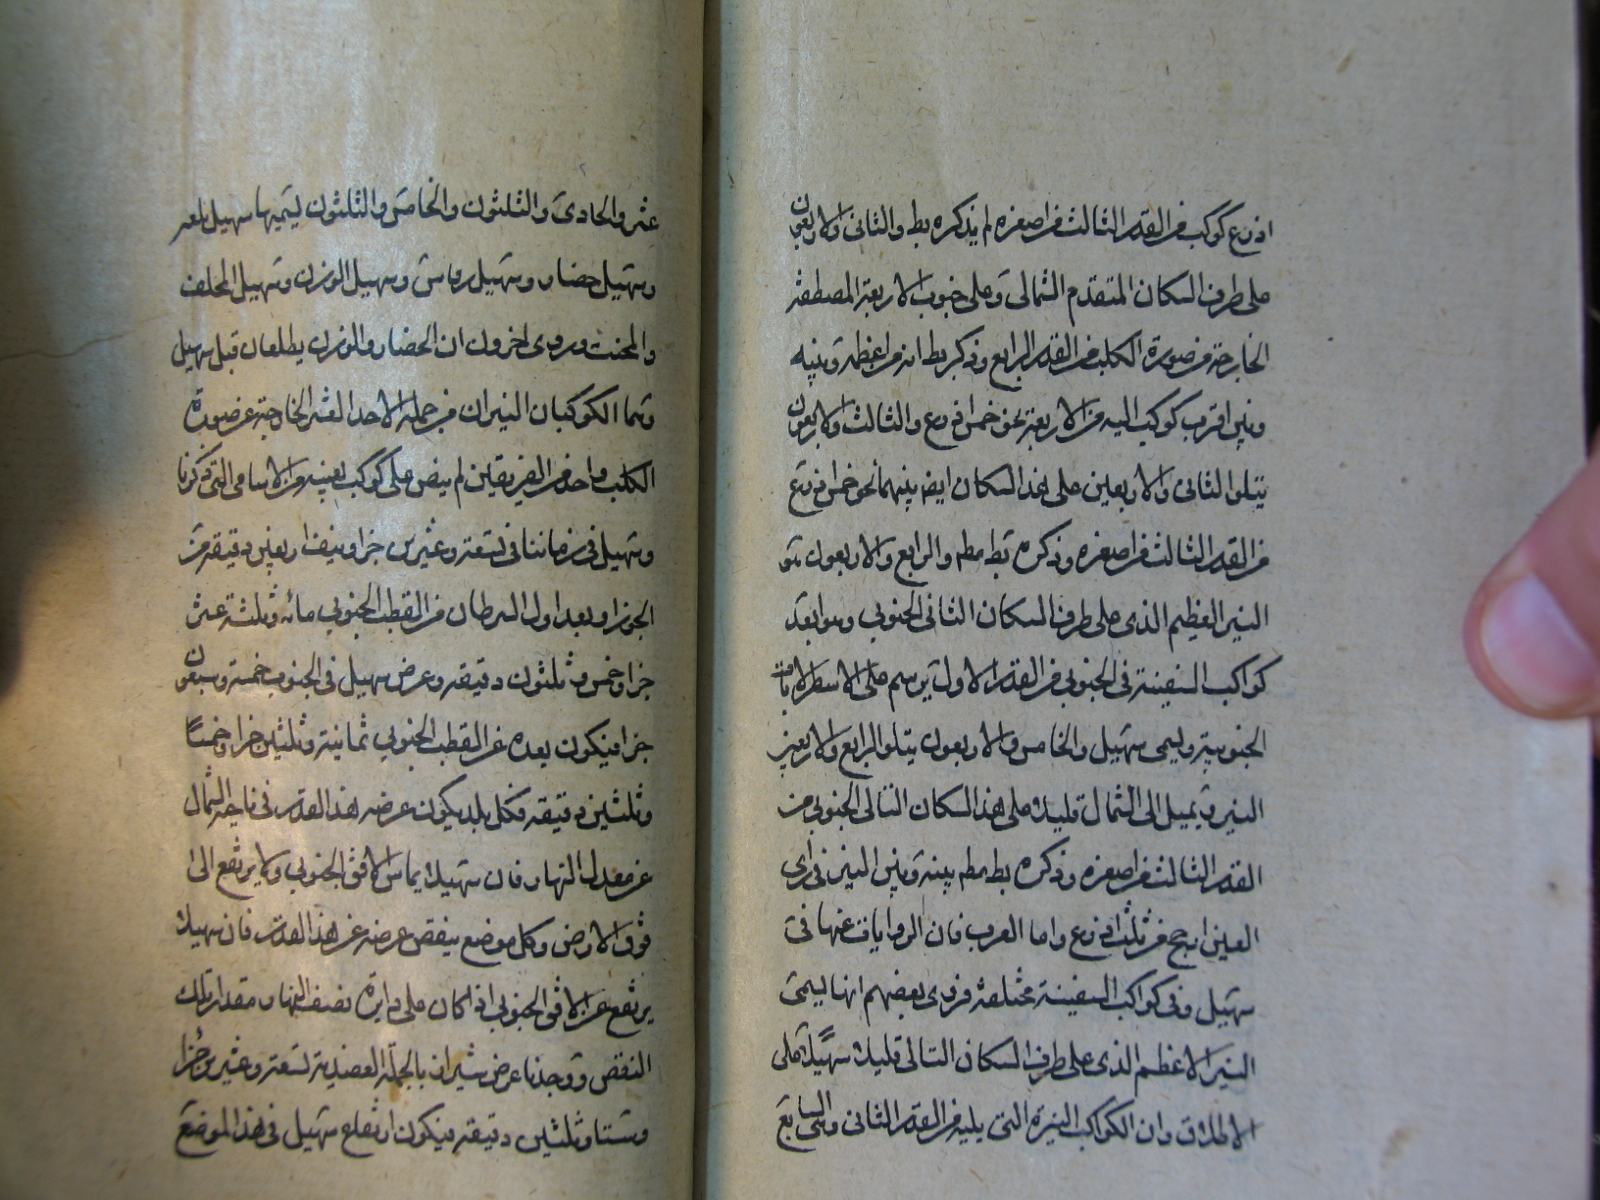 اذرع كوكب من القدر الثالث من اصغره لم يذكره بط والثانى والاربعون
على طرف السكان المتقدم الشمالى وعلى جنوب الاربعة المصطفة
الخارجة من صورة الكلب من القدر الرابع وذكر بط انه من اعظمه وبينه
وبين اقرب كوكب اليه من الاربعة نحو خمس اذرع والثالث والاربعون
يتلوا الثانى والاربعين على هذا السكان ايضا بينهما نحو خمس اذرع
من القدر الثالث من اصغره وذكره بط مطه والرابع والاربعون هو
النير العظيم الذى على طرف السكان الثانى الجنوبي وهو ابعد
كواكب السفينة فى الجنوب من القدر الاول يرسم على الاسطرلابات
الجنوبية ويسمى سهيل والخامس والاربعون يتلو الرابع والاربعين
النير ويميل الى الشمال قليلا على هذا السكان التالى الجنوبي من
القدر الثالث من اصغره وذكره بط مطه بينه وبين النير فى راى
العين ارجح من ثلث اذرع واما العرب فان الروايات عنها فى
سهيل وفى كواكب السفينة مختلفة فروى بعضهم انها يسمى
النير الاعظم الذى على طرف السكان التالى قليلا سهيلا على
الاطلاق وان الكواكب النيرة التى يليه من القدر الثانى وهى السابع
عشر والحادى والثلثون والخامس والثلثون ليسميها سهيل بلقين
وسهيل حضار وسهيل رقاش وسهيل الوزن وسهيل المحلف
والمحنث وروى اخرون ان الحضار والوزن يطلعان قبل سهيل
وهما الكوكبان النيران من جملة الاحد العشر الخارجة عن صورة
الكلب واحد من الفريقين لم ينص على كوكب بعينه من الاسامى التى ذكرنا
وسهيل فى زماننا فى تسعة وعشرين جزا ونيف اربعين دقيقة من
الجوزا وبعد اول السرطان من القطب الجنوبي مائه وثلثة عشر
جزا وخمس وثلثون دقيقه وعرض سهيل فى الجنوب خمسة وسبعون
جزا فيكون بعده عن القطب الجنوبي ثمانية وثلثين جزا وخمسا
وثلثين دقيقه فكل بلد يكون عرضه هذا القدر فى ناحية الشمال
عن معدل النهار فان سهيلا يماس الافق الجنوبي ولا يرتفع الى
فوق الارض وكل موضع ينقص عرضه عن هذا القدر فان سهيلا
يرتفع عن الافق الجنوبي اذا كان على دايرة نصف النهار مقدار تلك
النقص ووجدنا عرض شيراز بالحلقة العضدية تسعة وعشرين جزا
وستا وثلثين دقيقه فيكون ارتفاع سهيل فى هذا الموضع